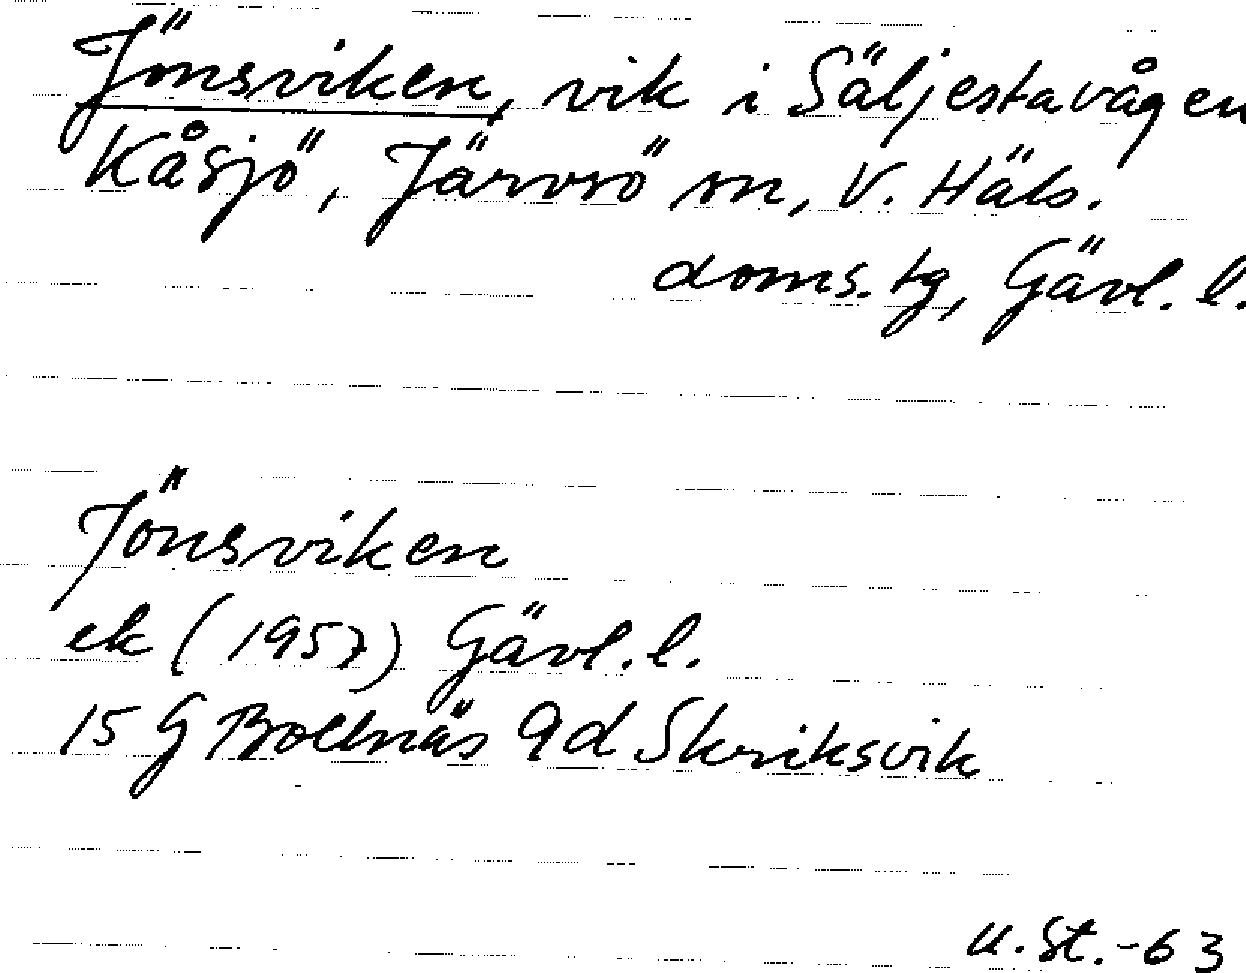 Jönsviken, vik i Säljestavågen
Kåsjö, Järvsö sn, V. Häls.
doms.tg, Gävl. l.
Jönsviken
ek (1957) Gävl. l.
15 G Bollnäs 9d Skriksvik
U.St.-63